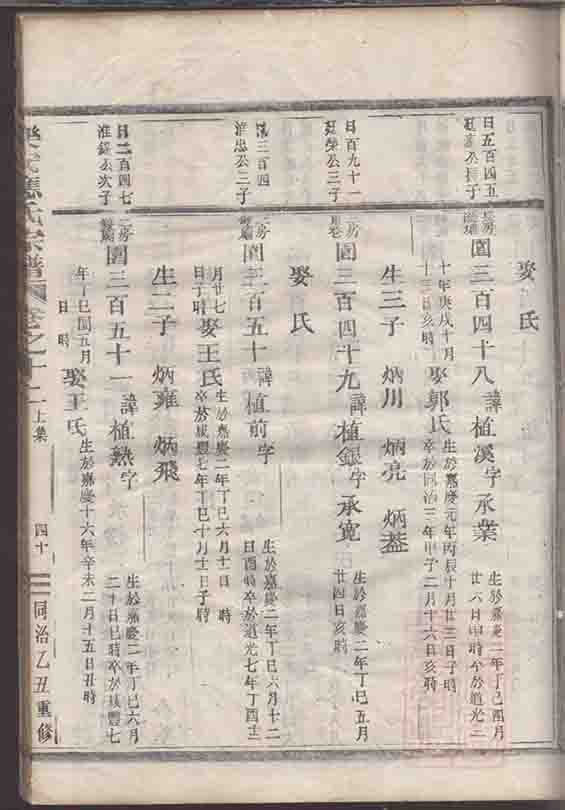 娶氏
日五百四五
長房
園三百四十八諱植溪字承業
生於嘉慶二年丁巳四月
廿六日申時卒於道光二
十年庚戌十月
十三日亥時
娶郭氏
生於嘉慶元年丙辰十月廿三日子時
卒於同治三年甲子二月十六日亥時
生三子 炳川 炳亮 炳益
日百九十一
廷榮公三子
二房
園三百四十九諱植銀字承寬
生於嘉慶二年丁巳五月
廿四日亥時
娶氏
三百四
淮忠公三子
二房
園三百五十諱植前字
生於嘉慶二年丁巳六月十二
日酉時卒於道光七年丁酉十二
月廿七
日子時
娶王氏
生於嘉慶二年丁巳六月十二日 時
卒於咸豐七年丁巳十月十二日子時
生二子 炳雍 炳飛
日二百四七
淮鎰公次子
二房
園三百五十一諱植熱字
生於嘉慶二年丁巳六月
二十日巳時卒於咸豐七
年丁巳閏五月
日時
娶王氏
生於嘉慶十六年辛未二月十五日丑時
氏宗譜
卷之十二
上集
四十
同治乙丑重修